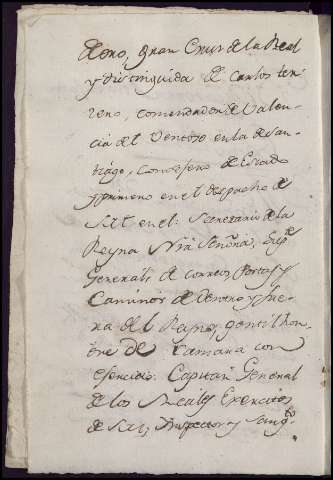 deoro, gran Cruz de la Real
y distinguida de Carlos ter
zero, comendador de Valen
cia del Ventoso en la de San
tiago, Consejero de Estado
primero en el despacho de
Secretario de la
Reyna Nra Señora,
Generals de correos, Postas y
Caminos de dentro y fue
ra del Reyno, gentilhom
bre de Camara con
Capitan General
de los Reales Exercitos
de S.M., Inspector y Sargto